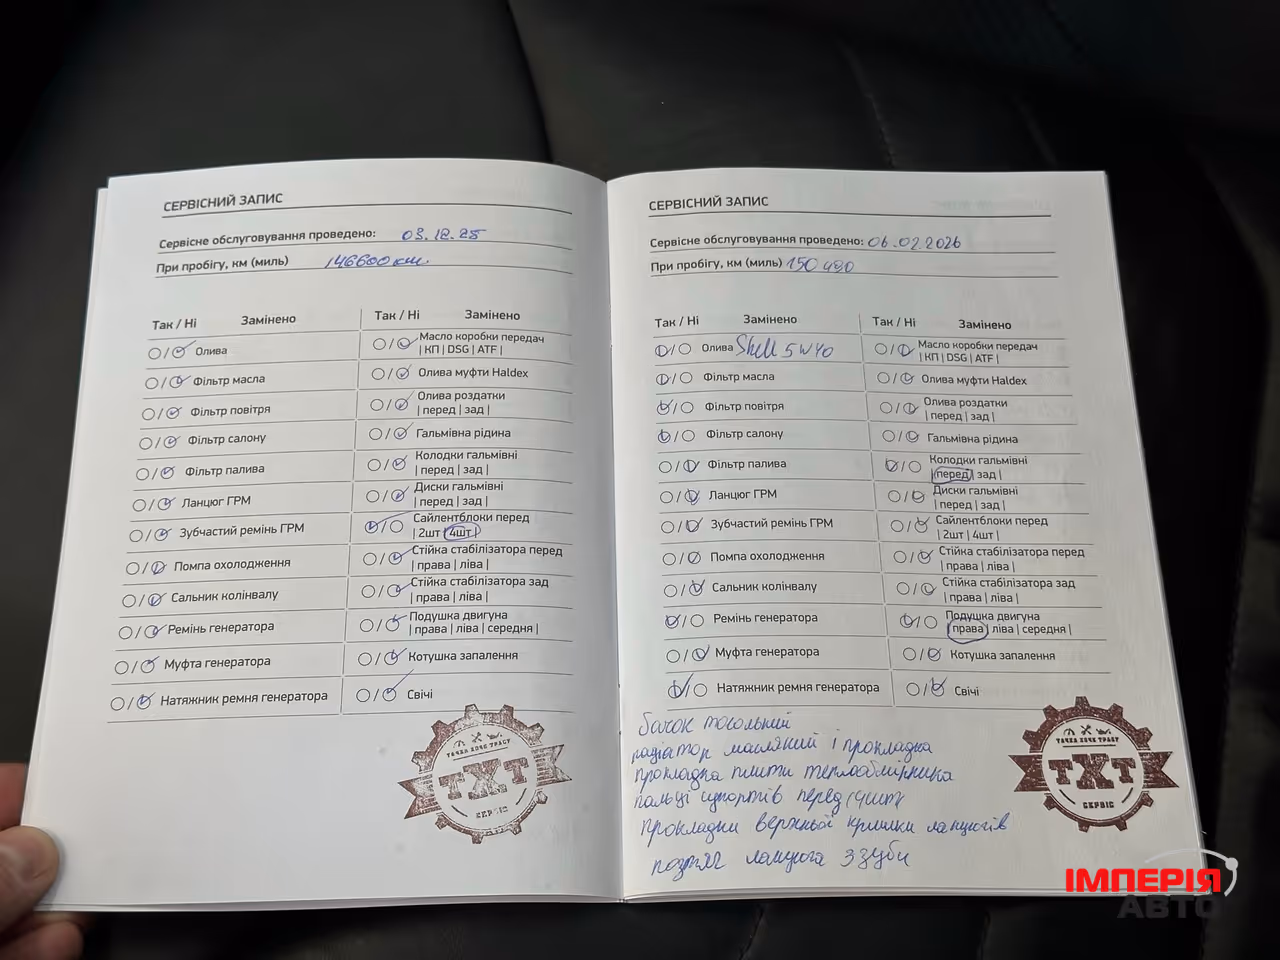 СЕРВІСНИЙ ЗАПИС
Сервісне обслуговування проведено: 03.12.25
При пробігу, км (миль) 146600 км.
Так / Ні Замінено
Олива
Фільтр масла
Фільтр повітря
Фільтр салону
Фільтр палива
Ланцюг ГРМ
Зубчастий ремінь ГРМ
Помпа охолодження
Сальник колінвалу
Ремінь генератора
Муфта генератора
Натяжник ремня генератора
Так / Ні Замінено
Масло коробки передач
| КП | DSG | ATF |
Олива муфти Haldex
Олива роздатки
| перед | зад |
Гальмівна рідина
Колодки гальмівні
| перед | зад |
Диски гальмівні
| перед | зад |
Сайлентблоки перед
| 2шт | 4шт |
Стійка стабілізатора перед
| права | ліва |
Стійка стабілізатора зад
| права | ліва |
Подушка двигуна
| права | ліва | середня |
Котушка запалення
Свічі
ТОЧКА ХОЧЕ ТРАСУ
ТХТ
СЕРВІС
СЕРВІСНИЙ ЗАПИС
Сервісне обслуговування проведено: 06.02.2026
При пробігу, км (миль) 150 490
Так / Ні Замінено
Олива Shell 5W40
Фільтр масла
Фільтр повітря
Фільтр салону
Фільтр палива
Ланцюг ГРМ
Зубчастий ремінь ГРМ
Помпа охолодження
Сальник колінвалу
Ремінь генератора
Муфта генератора
Натяжник ремня генератора
Так / Ні Замінено
Масло коробки передач
| КП | DSG | ATF |
Олива муфти Haldex
Олива роздатки
| перед | зад |
Гальмівна рідина
Колодки гальмівні
| перед | зад |
Диски гальмівні
| перед | зад |
Сайлентблоки перед
| 2шт | 4шт |
Стійка стабілізатора перед
| права | ліва |
Стійка стабілізатора зад
| права | ліва |
Подушка двигуна
| права | ліва | середня |
Котушка запалення
Свічі
бачок тосольний
радіатор масляний і прокладка
прокладка плити теплообмінника
пальці супортів перед (4шт)
прокладки верхньої кришки ланцюгів
ланцюга 3 зуби
ТОЧКА ХОЧЕ ТРАСУ
ТХТ
СЕРВІС
ІМПЕРІЯ
АВТО